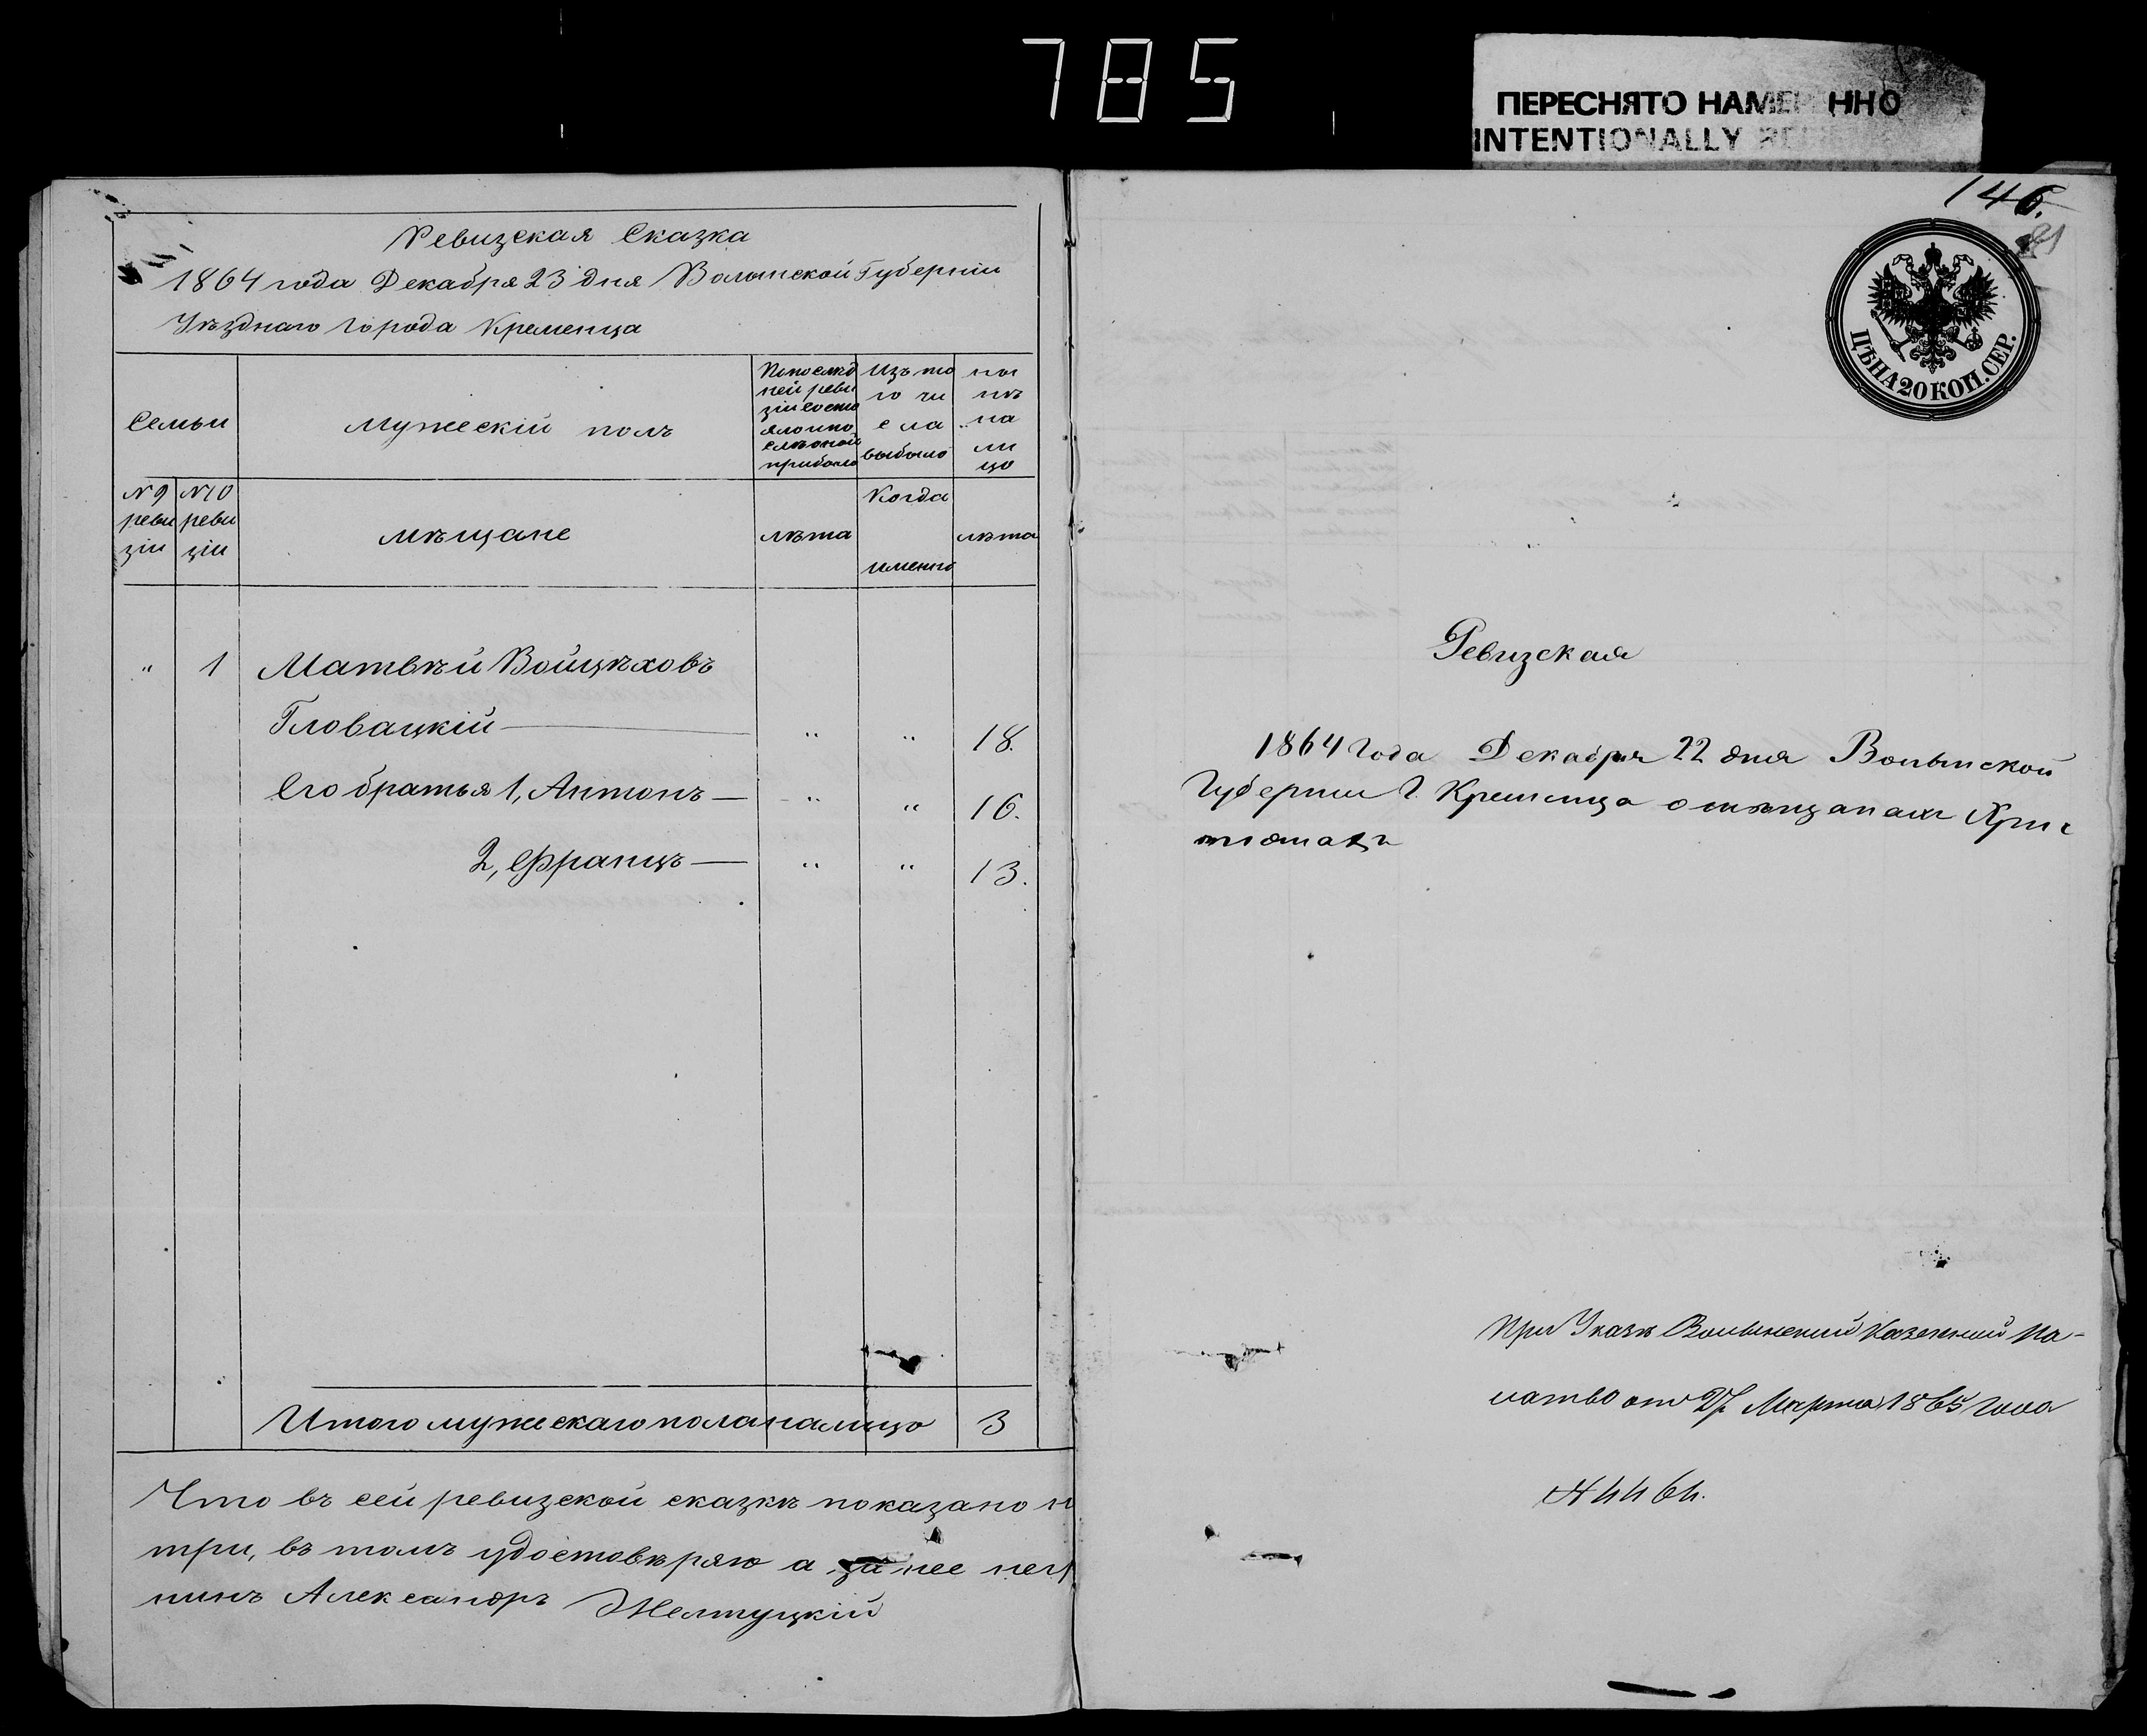 785
ПЕРЕСНЯТО НАМЕ ННО
INTENTIONALLY
Ревизская Сказка
1864 года Декабря 23 дня Волынской Губерніи
Уѣзднаго города Кременца
Семьи
мужескій полъ
По послѣд
ней реви
зіи состо
яло и по
слѣ оной
прибыло
Изъ то
го чи
сла
выбыло
ны
нѣ
на
ли
цо
№ 9
реви
зіи
№ 10
реви
зіи
мѣщане
лѣта
Когда
именно
лѣта
" 1 Матвѣй Войцѣховъ
Гловацкій " " 18.
Его братья 1, Антонъ — " " 16.
2, Францъ — " " 13.
Итого мужескаго пола налицо 3
Что въ сей ревизской сказкѣ показано
три, въ томъ удостовѣряю а за нее
нинъ Александръ Желтуцкій
146.
ЦѢНА 20 КОП. СЕР.
Ревизская
1864 Года Декабря 22 дня Волынской
Губерніи Г. Кременца о мѣщанахъ Хрис
тіянахъ
При Указѣ Волынской Казенной Па-
латы от 27 Марта 1865 года
№ 4464.